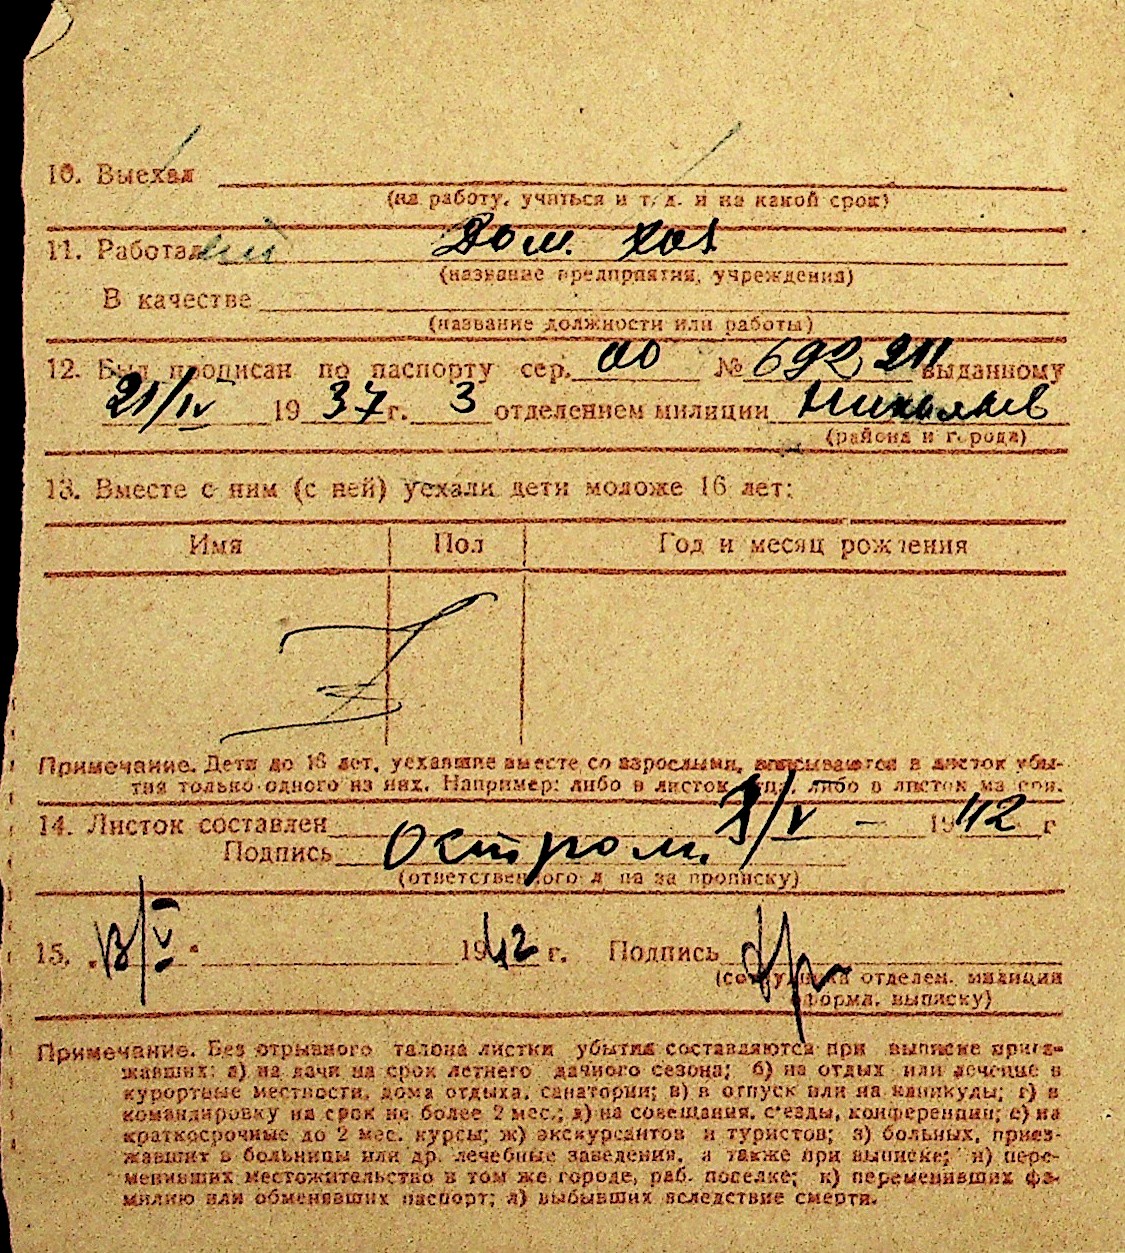 10. Выехал
(на работу, учиться и т. д. и на какой срок)
11. Работал Дом. хоз
(название предприятия, учреждения)
В качестве
(название должности или работы)
12. Был прописан по паспорту сер. № 692 211 выданному
21/IV 1937 г. 3 отделением милиции Николаев
(района и города)
13. Вместе с ним (с ней) уехали дети моложе 16 лет:
Имя Пол Год и месяц рождения
Примечание. Дети до 16 лет, уехавшие вместе со взрослыми, вписываются в листок убы-
тия только одного из них. Например: либо в листок отца, либо в листок матери.
14. Листок составлен /V – 1942 г
Подпись Остром.
(ответственного лица за прописку)
15. „13/V“ 1942 г. Подпись
(сотрудника отделен. милиции
оформ. выписку)
Примечание. Без отрывного талона листки убытия составляются при выписке приез-
жавших: а) на дачи на срок летнего дачного сезона; б) на отдых или лечение в
курортные местности, дома отдыха, санатории; в) в отпуск или на каникулы; г) в
командировку на срок не более 2 мес.; д) на совещания, с'езды, конференции; е) на
краткосрочные до 2 мес. курсы; ж) экскурсантов и туристов; з) больных, приез-
жавших в больницы или др. лечебные заведения, а также при выписке; и) пере-
менивших местожительство в том же городе, раб. поселке; к) переменивших фа-
милию или обменявших паспорт; л) выбывших вследствие смерти.